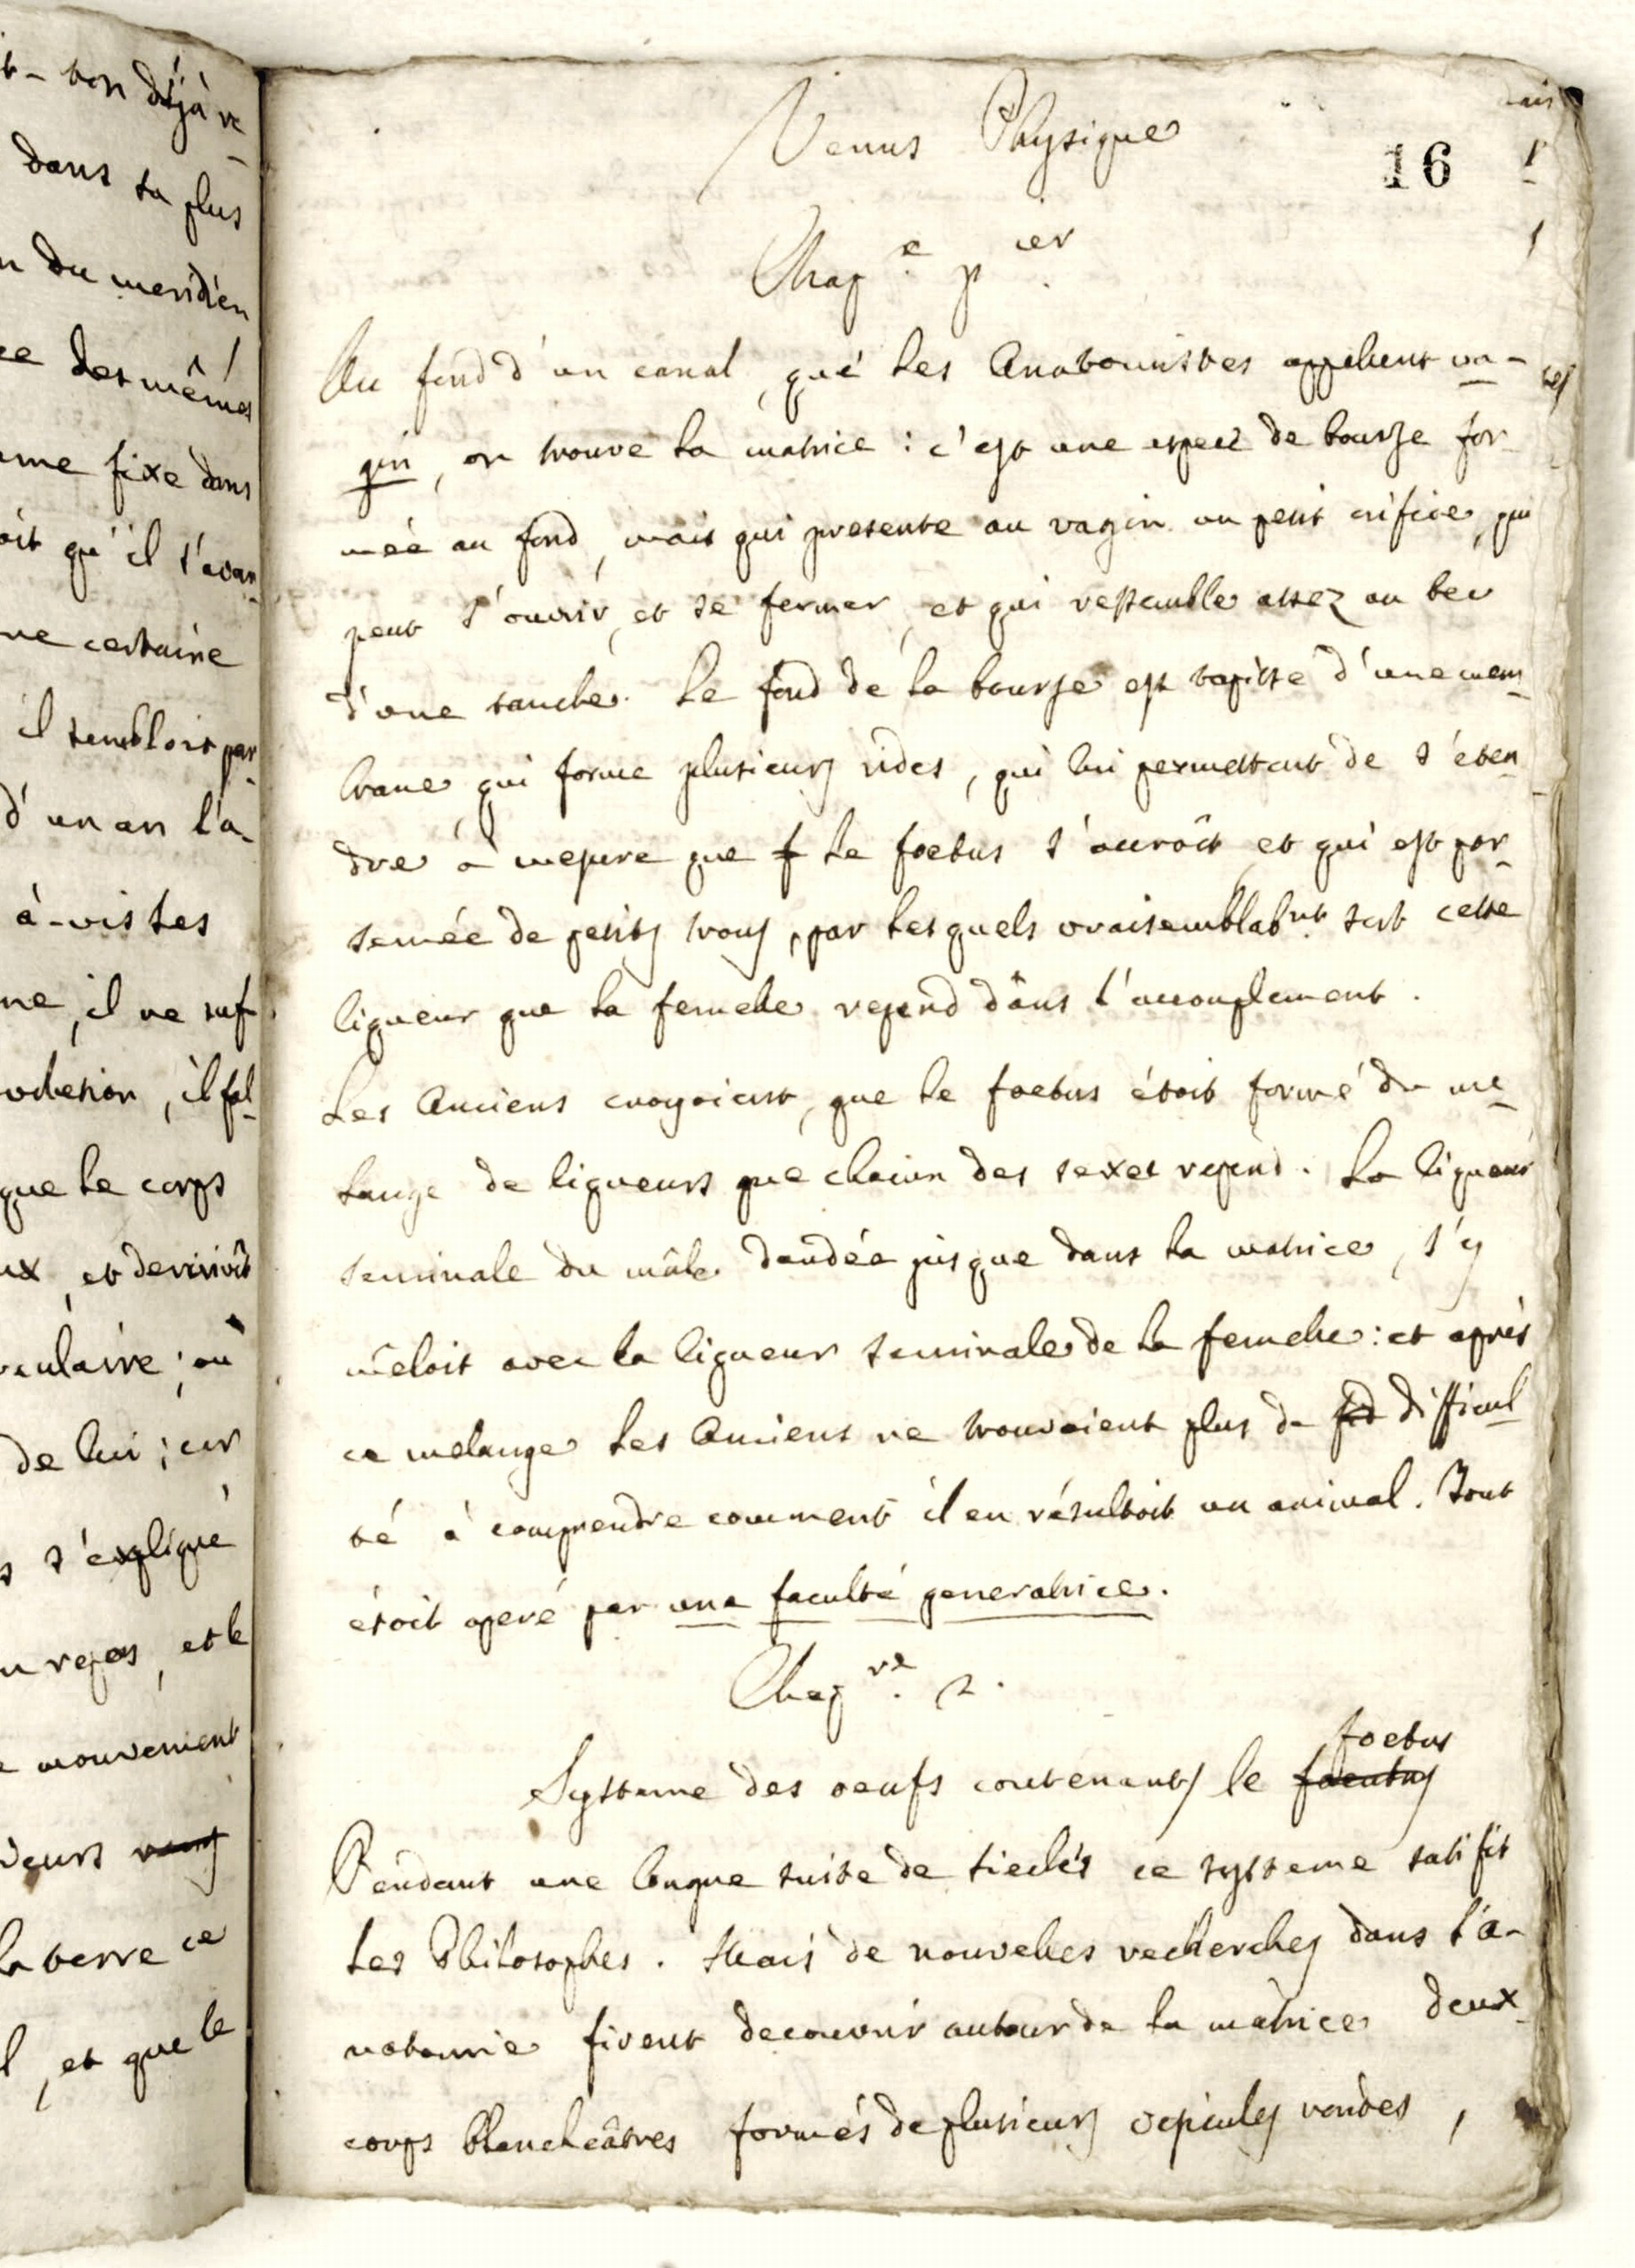 t-bon déjà ve
dans sa plus
n du meridien
ce des mêmes
ame fixe dans
oit qu'il s'avan
ne certaine
il sembloit par
d'un an l'a-
à-vis les
me, il ne suf
vohesion, il fal
que le corps
ux, et derivoit
culaire; ou
de lui; car
s s'expliqué
u repos, et le
e mouvement
deurs
la terre ce
l, et que le
Venus Physique
16
Chap.e p.ier
Au fond d'un canal, que les Anatomistes appellent va-
gin, on trouve la matrice : c'est une espece de bourse for-
mée au fond, mais qui presente au vagin un petit orifice, qui
peut s'ouvrir, et se fermer, et qui ressemble assez au bec
d'une tanche. Le fond de la bourse est tapissé d'une mem-
brane, qui forme plusieurs rides, qui lui permettent de s'éten-
dre à mesure que f le foetus s'accroît et qui est par-
semée de petits trous, par lesquels vraisemblabnt. sort cette
liqueur que la femelle repend dans l'accouplement.
Les Anciens croyoient, que le foetus étoit formé du me-
lange de liqueurs que chacun des sexes repend. La liqueur
seminale du mâle dardée jusque dans la matrice, s'y
mêloit avec la liqueur seminale de la femelle : et après
ce melange les Anciens ne trouvoient plus de difficul-
té à comprendre comment il en résultoit un animal. Tout
étoit operé par une faculté generatrice.
Chap.re 2.
Systeme des oeufs contenants le foetus
Pendant une longue suite de siecles ce systeme satisfit
les Philosophes. Mais de nouvelles recherches dans l'a-
natomie firent decouvrir autour de la matrice deux
corps blancheâtres formés de plusieurs vesicules rondes,